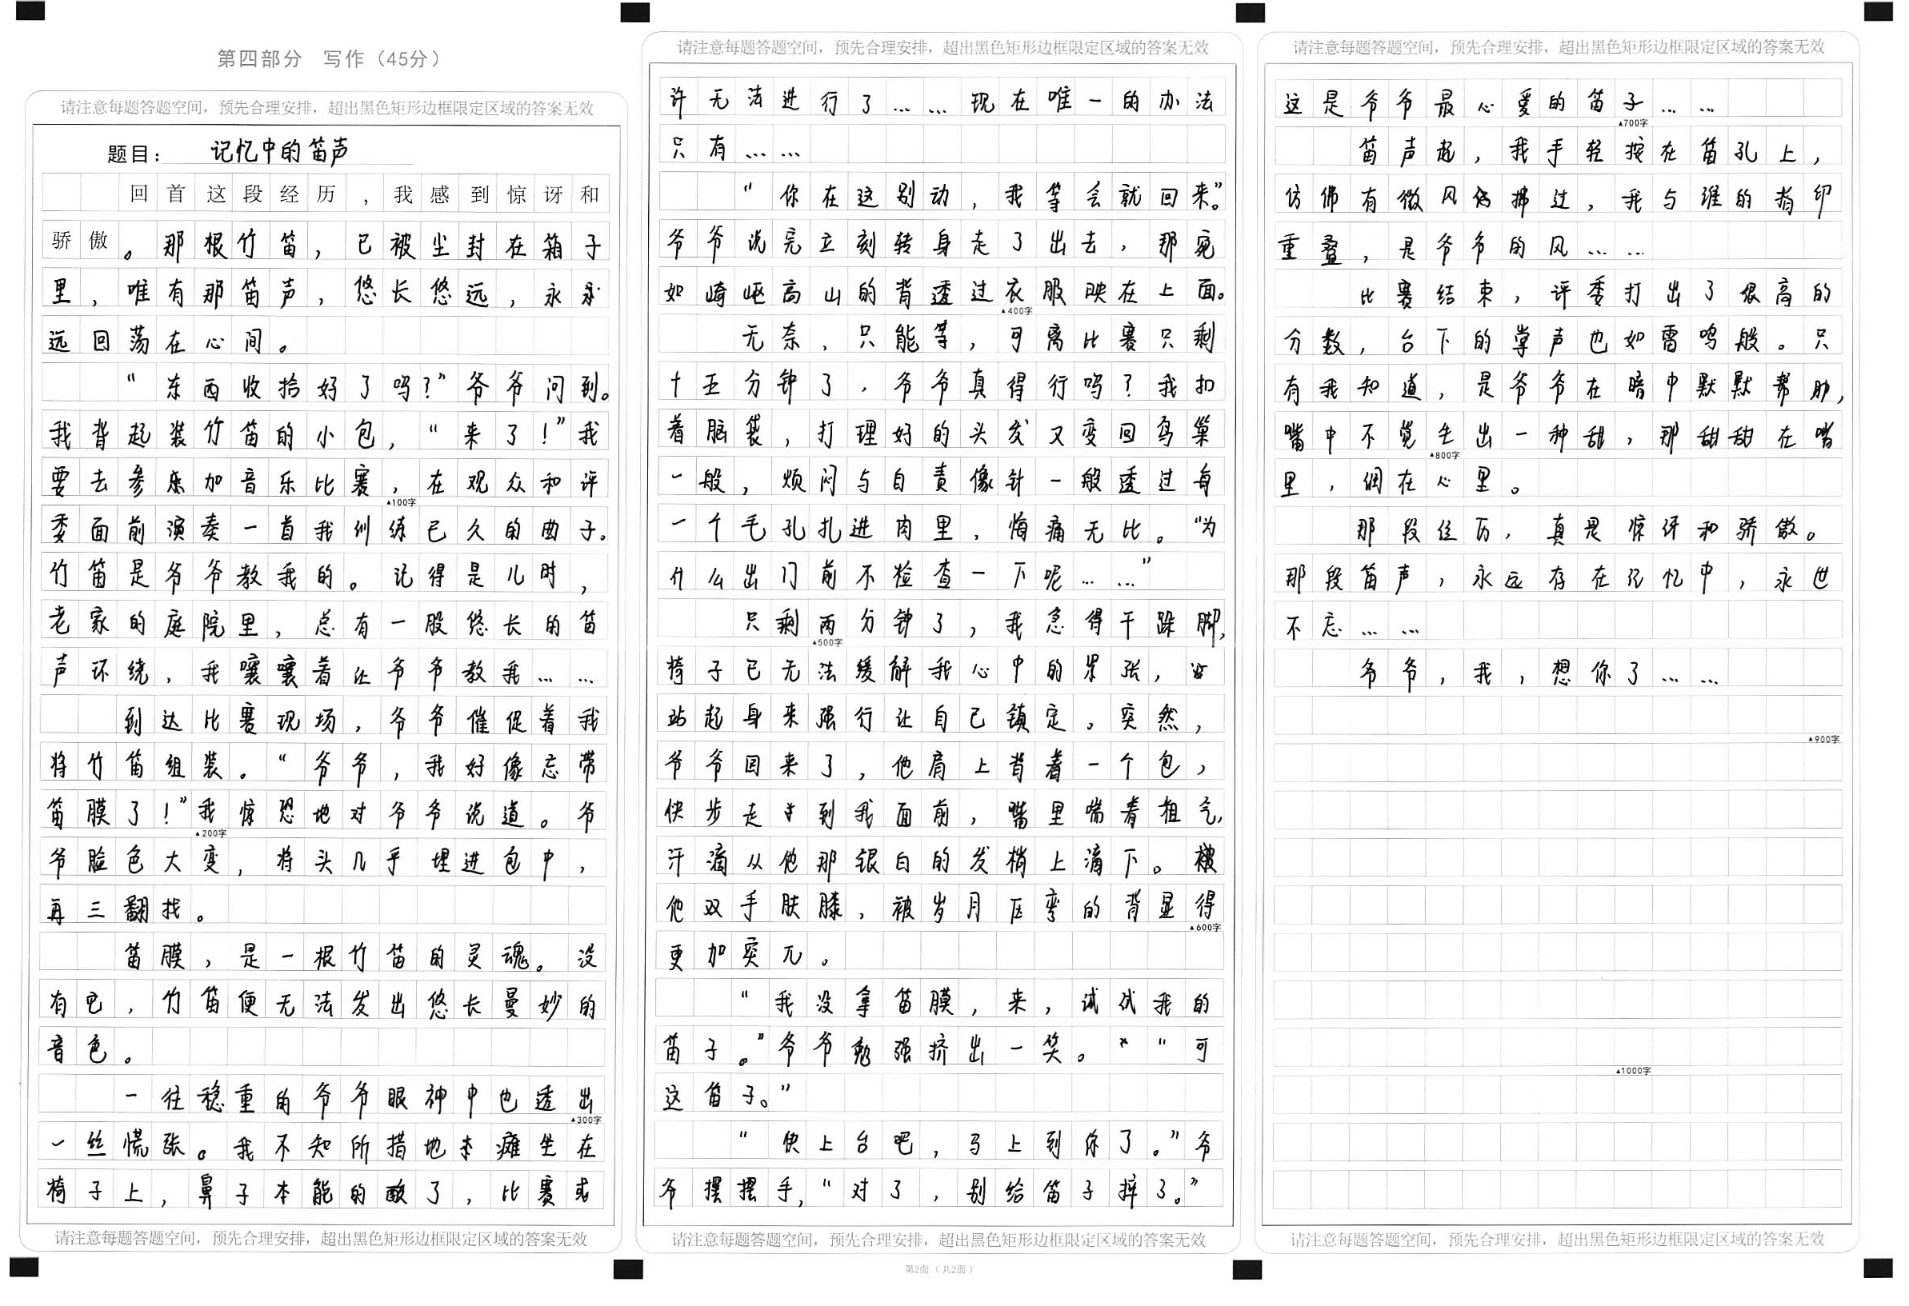 第四部分　写作（45分）
请注意每题答题空间，预先合理安排，超出黑色矩形边框限定区域的答案无效
题目：记忆中的笛声
回首这段经历，我感到惊讶和
骄傲。那根竹笛，已被尘封在箱子
里，唯有那笛声，悠长悠远，永
远回荡在心间。
“东西收拾好了吗？”爷爷问到。
我背起装竹笛的小包，“来了！”我
要去参加音乐比赛，在观众和评
▲100字
委面前演奏一首我训练已久的曲子。
竹笛是爷爷教我的。记得是儿时，
老家的庭院里，总有一股悠长的笛
声环绕，我嚷嚷着让爷爷教我……
到达比赛现场，爷爷催促着我
将竹笛组装。“爷爷，我好像忘带
笛膜了！”我惊恐地对爷爷说道。爷
▲200字
爷脸色大变，将头几乎埋进包中，
再三翻找。
笛膜，是一根竹笛的灵魂。没
有它，竹笛便无法发出悠长曼妙的
音色。
一往稳重的爷爷眼神中也透出
▲300字
一丝慌张。我不知所措地瘫坐在
椅子上，鼻子本能的酸了，比赛或
请注意每题答题空间，预先合理安排，超出黑色矩形边框限定区域的答案无效
请注意每题答题空间，预先合理安排，超出黑色矩形边框限定区域的答案无效
许无法进行了……现在唯一的办法
只有……
“你在这别动，我等会就回来。”
爷爷说完立刻转身走了出去，那宛
如崎岖高山的背透过衣服映在上面。
▲400字
无奈，只能等，可离比赛只剩
十五分钟了，爷爷真得行吗？我扣
着脑袋，打理好的头发又变回鸟巢
一般，烦闷与自责像针一般透过每
一个毛孔扎进肉里，悔痛无比。“为
什么出门前不检查一下呢……”
只剩两分钟了，我急得干跺脚，
▲500字
椅子已无法缓解我心中的紧张，
站起身来强行让自己镇定。突然，
爷爷回来了，他肩上背着一个包，
快步走到我面前，嘴里喘着粗气，
汗滴从他那银白的发梢上滴下。
他双手扶膝，被岁月压弯的背显得
▲600字
更加突兀。
“我没拿笛膜，来，试试我的
笛子。”爷爷勉强挤出一笑。“可
这笛子。”
“快上台吧，马上到你了。”爷
爷摆摆手，“对了，别给笛子摔了。”
请注意每题答题空间，预先合理安排，超出黑色矩形边框限定区域的答案无效
第2面（共2面）
请注意每题答题空间，预先合理安排，超出黑色矩形边框限定区域的答案无效
这是爷爷最心爱的笛子……
▲700字
笛声起，我手轻按在笛孔上，
仿佛有微风拂过，我与谁的指印
重叠，是爷爷的风……
比赛结束，评委打出了很高的
分数，台下的掌声也如雷鸣般。只
有我知道，是爷爷在暗中默默帮助，
嘴中不觉生出一种甜，那甜甜在嘴
▲800字
里，润在心里。
那段经历，真是惊讶和骄傲。
那段笛声，永远存在记忆中，永世
不忘……
爷爷，我，想你了……
▲900字
▲1000字
请注意每题答题空间，预先合理安排，超出黑色矩形边框限定区域的答案无效